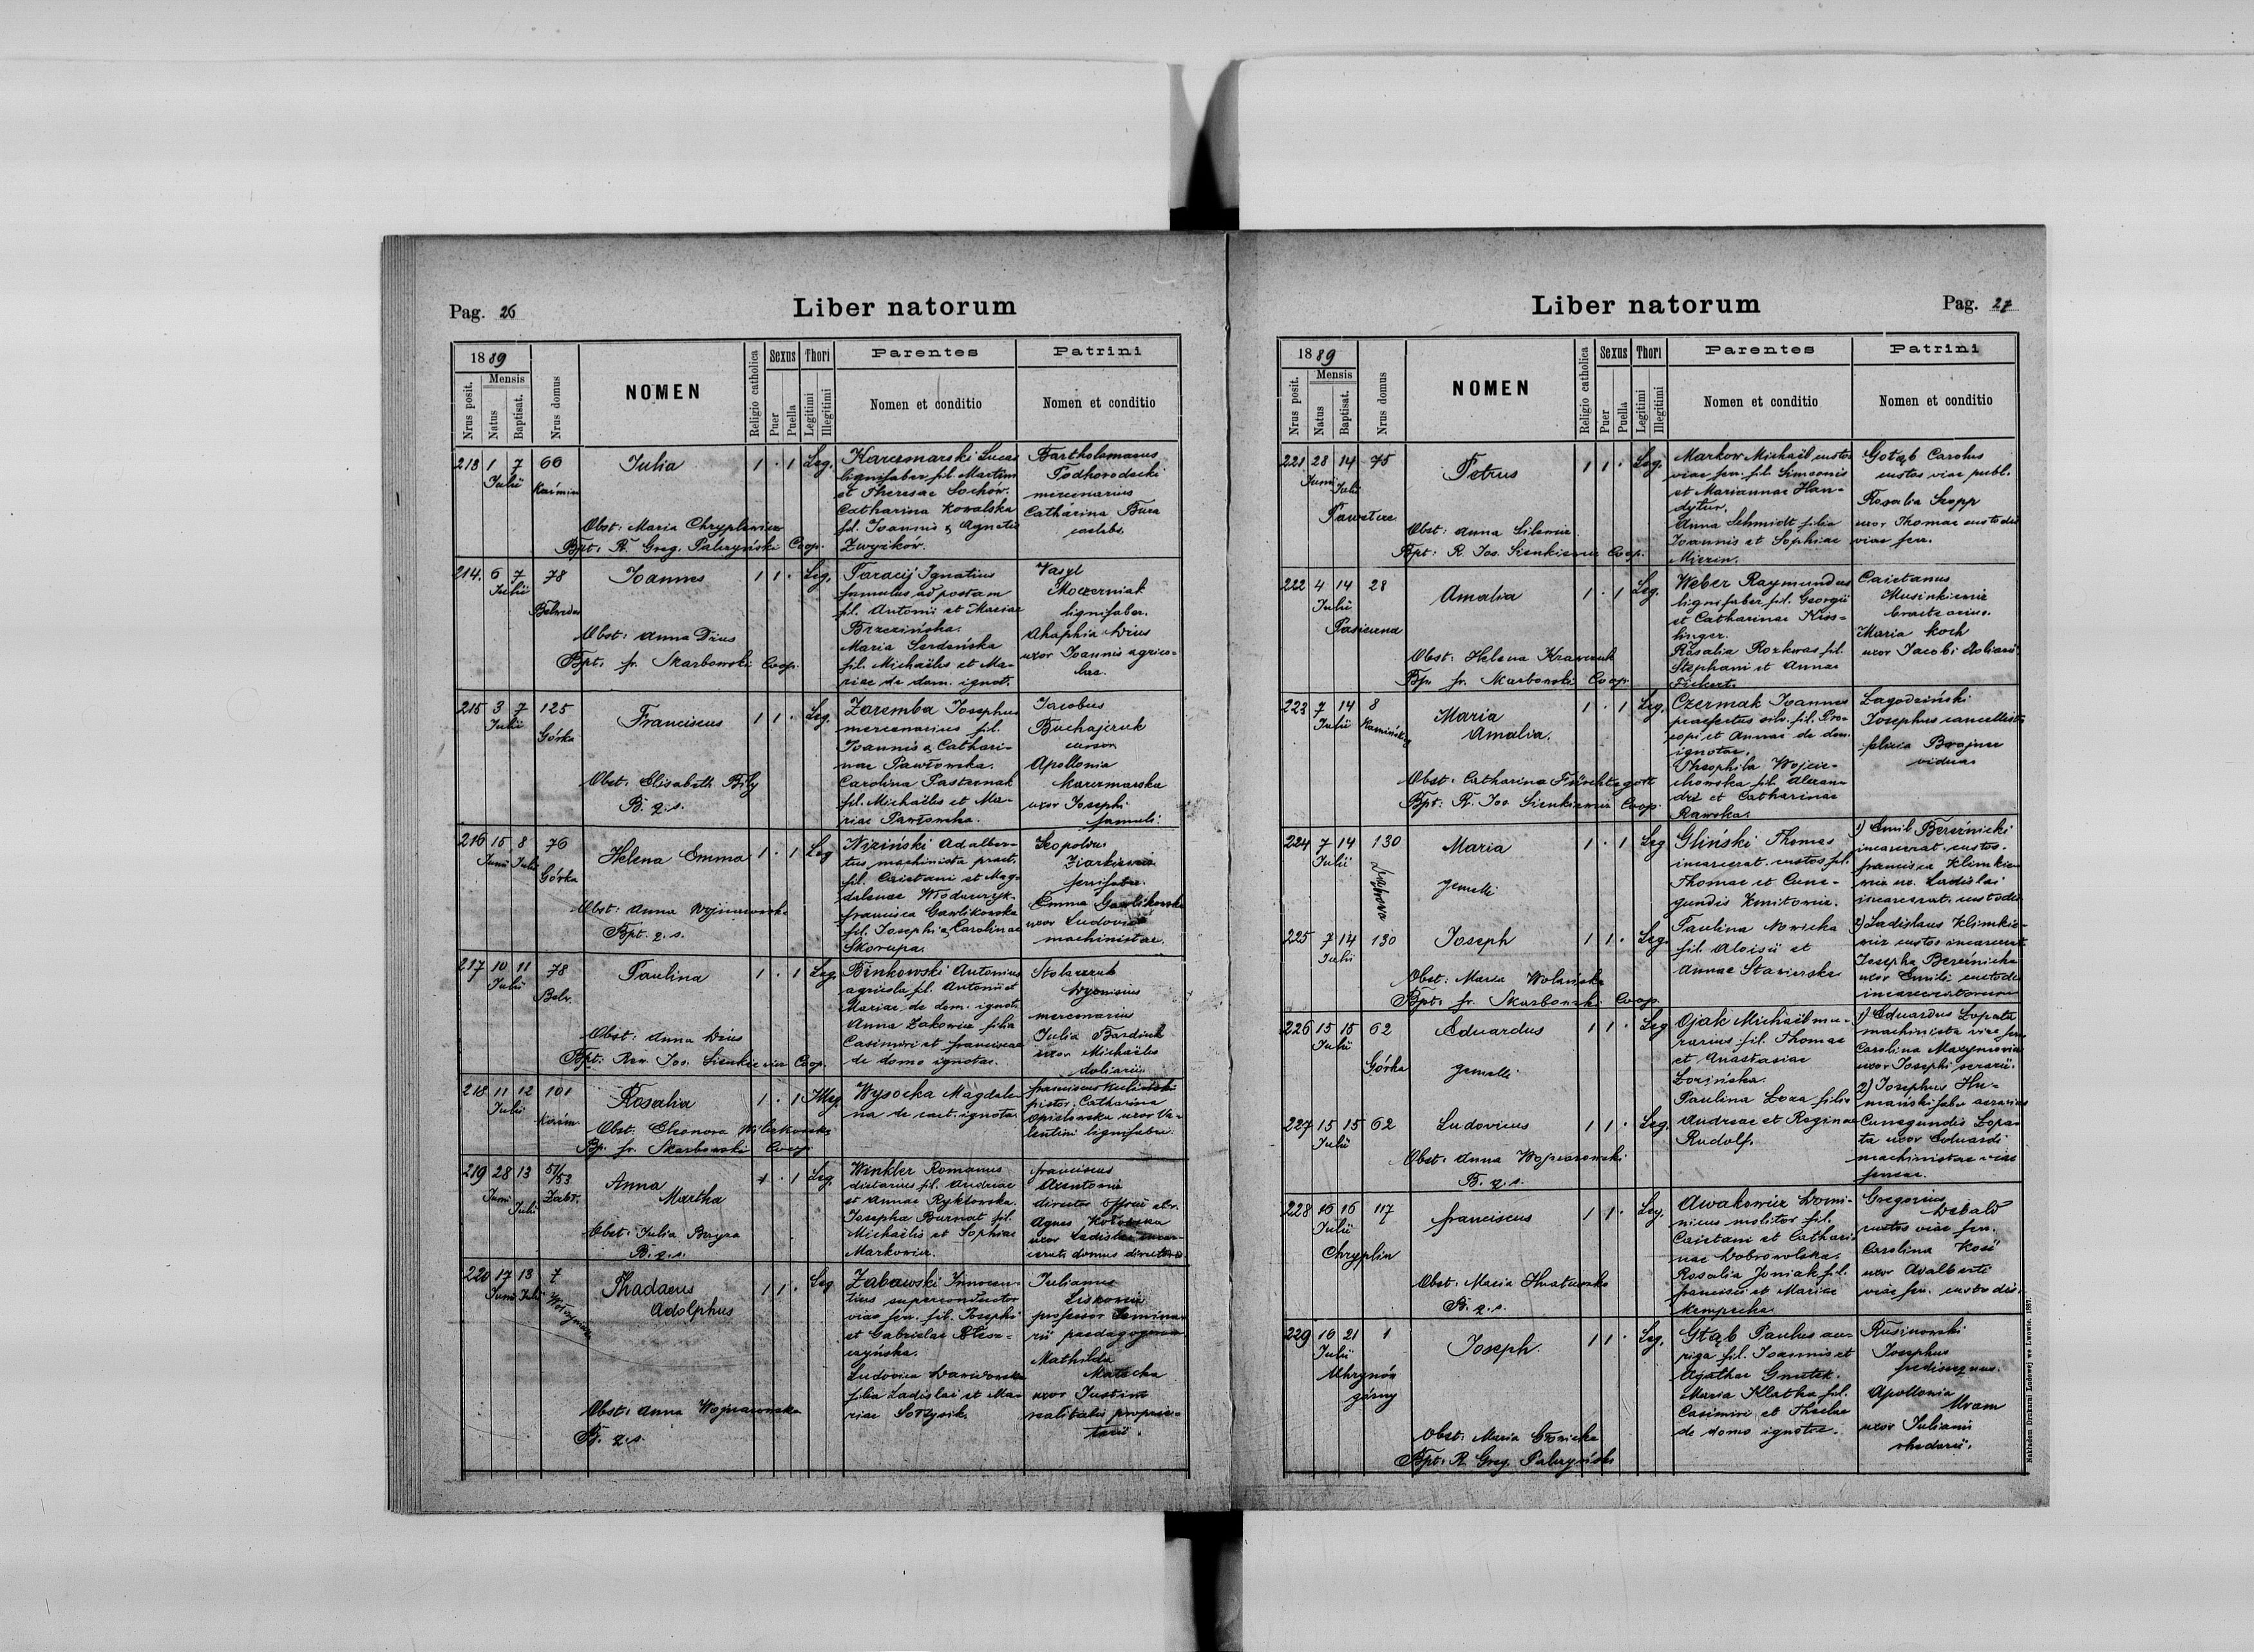 Pag. 26
Liber natorum
1889
Nrus posit.
Mensis
Natus
Baptisat.
Nrus domus
NOMEN
Religio catholica
Sexus
Puer
Puella
Thori
Legitimi
Illegitimi
Parentes
Nomen et conditio
Patrini
Nomen et conditio
213 1 7 66 Julia 1 . 1 Leg.
Julii
Obst: Maria Chryplewicz
Bpt: R. Greg. Palczyński Coop.
Karczmarski Lucas
lignifaber fil. Martini
et Theresae Sochów.
Catharina Kowalska
fil. Joannis & Agnetis
Zwyzików.
Bartholomaeus
Podhorodecki
mercenarius
Catharina Bura
caelebs.
214. 6 7 78 Joannes 1 1 . Leg.
Julii
Belweder
Obst: Anna Dzius
Bpt: fr. Skarbowski Coop.
Taracij Ignatius
famulus ad postam
fil. Antonii et Mariae
Brzezińska.
Maria Serdeńska
fil. Michaëlis et Ma-
riae de dom. ignot.
Vasyl
Moczerniak
lignifaber.
Ahaphia Dzius
uxor Joannis agrico-
lae.
215 3 7 125 Franciscus 1 1 . Leg.
Julii
Górka
Obst: Elisabeth Bily
B. q. s.
Zaremba Josephus
mercenarius fil.
Joannis & Cathari-
nae Pawłowska.
Carolina Pasternak
fil. Michaëlis et Ma-
riae Pawłowska.
Jacobus
Buchajczuk
cursor
Apollonia
Karczmarska
uxor Josephi
famuli.
216 15 8 76 Helena Emma 1 . 1 Leg
Junii Julii
Górka
Obst: Anna
Bpt. q. s.
Niziński Adalber-
tus machinista pract.
fil. Caietani et Mag-
dalenae
Francisca Gawlikowska
fil. Josephi & Carolinae
Skorupa.
Leopoldus
Ziarkiewicz
ferrifaber.
Emma Gawlikowska
uxor Ludovici
machinistae.
217 10 11 78 Paulina 1 . 1 Leg.
Julii
Belw.
Obst: Anna Dzius
Bpt: Rev. Jos. Sienkiewicz Coop.
Binkowski Antonius
agricola fil. Antonii et
Mariae de dom. ignot.
Anna Zakowicz filia
Casimiri et Franciscae
de domo ignotae.
Stolarczuk
Dyonisius
mercenarius
Julia
uxor Michaëlis
doliarii
218 11 12 101 Rosalia 1 . 1 Illeg
Julii
Obst: Eleonora
Bp. fr. Skarbowski Coop.
Wysocka Magdale-
na de caet. ignota.
Franciscus
pistor. Catharina
Opielowska uxor Va-
lentini lignifabri.
219 28 13 51/53 Anna 1 . 1 Leg
Junii Julii
Zabł.
Martha
Obst: Julia Bryza
B. q. s.
Winkler Romanus
dietarius fil. Andreae
et Annae Ryktowska.
Josepha Burnat fil.
Michaëlis et Sophiae
Markowicz.
Franciscus
Axentowicz
director
Agnes
uxor Ladislai
domus directoris
220 17 13 7 Thadaeus 1 1 . Leg
Junii Julii
Adolphus
Obst: Anna
B. q. s.
Zabawski Innocen-
tius superconductor
viae fer. fil. Josephi
et Gabrielae
Ludovica
filia Ladislai et Ma-
riae Sołtysik.
Julianus
Liskowicz
professor Semina-
rii
Mathilda
Matecka
uxor Justini
realitatis proprie-
tarii.
Liber natorum
Pag. 27
1889
Nrus posit.
Mensis
Natus
Baptisat.
Nrus domus
NOMEN
Religio catholica
Sexus
Puer
Puella
Thori
Legitimi
Illegitimi
Parentes
Nomen et conditio
Patrini
Nomen et conditio
221 28 14 75 Petrus 1 1 . Leg.
Junii Julii
Obst: Anna
Bpt: R. Jos. Sienkiewicz Coop.
Markow Michaël custos
viae fer. fil. Simeonis
et Mariannae Han-
dytur.
Anna Schmidt filia
Joannis et Sophiae
Gołąb Carolus
custos viae publ.
Rosalia Szopp
uxor Thomae custodis
viae fer.
222 4 14 28 Amalia 1 . 1 Leg.
Julii
Pasieczna
Obst: Helena Krawczuk
Bp. fr. Skarbowski Coop
Weber Raymundus
lignifaber fil. Georgii
et Catharinae Kiss-
linger.
Rosalia Rozkwas fil.
Stephani et Annae
Fickert.
Caietanus
Musinkiewicz
Maria Koch
uxor Jacobi doliarii.
223 7 14 8 Maria 1 . 1 Leg.
Julii
Amalia.
Obst: Catharina Fürchtegott
Bpt. R. Jos. Sienkiewicz Coop.
Czermak Joannes
praefectus silv. fil. Pro-
copi et Annae de dom.
ignotae.
Theophila Wojcie-
chowska fil. Alexan-
dri et Catharinae
Rawska.
Lagodziński
Josephus cancellista
vidua
224 7 14 130 Maria 1 . 1 Leg
Julii
gemelli
225 7 14 130 Joseph 1 1 . Leg.
Julii
Obst: Maria Wolańska
Bpt: fr. Skarbowski Coop.
Gliński Thomas
incarcerat. custos fil.
Thomae et Cune-
gundis Kmitowicz.
Paulina Nowicka
fil. Aloisii et
Annae
1) Emil Bereźnicki
incarcerat. custos.
Francisca Klimkie-
wicz ux. Ladislai
incarcerat. custodis
2) Ladislaus Klimkie-
wicz custos incarcerat.
Josepha Bereźnicka
uxor Emili custodis
incarceratorum
226 15 15 62 Eduardus 1 1 . Leg
Julii
Górka
gemelli
227 15 15 62 Ludovicus 1 1 . Leg.
Julii
Obst: Anna
B. q. s.
Ojak Michaël mu-
rarius fil. Thomae
et Anastasiae
Lozińska.
Paulina Loza filia
Andreae et Reginae
Rudolf.
1) Eduardus Lopata
machinista viae fer.
Carolina
uxor Josephi
2) Josephus Hu-
mański faber aerarius
Cunegundis Lopa-
ta uxor Eduardi
machinistae viae
ferreae.
228 16 16 117 Franciscus 1 1 . Leg.
Julii
Chryplin
Obst: Maria
B. q. s.
Awakowicz Domi-
nicus molitor fil.
Caietani et Cathari-
nae Dobrowolska.
Rosalia Joniak fil.
Francisci et Mariae
Gregorius
custos viae fer.
Carolina
uxor Adalberti
viae fer. custodis.
229 16 21 1 Joseph. 1 1 . Leg.
Julii
Uhrynów
górny
Obst: Maria Głowicka
Bpt: R. Greg. Palczyński
Głąb Paulus au-
riga fil. Joannis et
Agathae Gmitek.
Maria Klatka fil.
Casimiri et Theclae
de domo ignotae.
Rusinowski
Josephus
pedisequus.
Apollonia
Mram
uxor Juliani
rhedarii.
Nakładem Drukarni Ludowej we Lwowie. 1887.